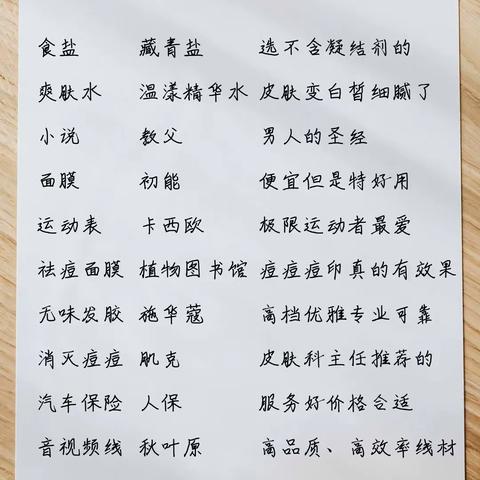 食盐 藏青盐 选不含凝结剂的
爽肤水 温漾精华水 皮肤变白皙细腻了
小说 教父 男人的圣经
面膜 初能 便宜但是特好用
运动表 卡西欧 极限运动者最爱
祛痘面膜 植物图书馆 痘痘痘印真的有效果
无味发胶 施华蔻 高档优雅专业可靠
消灭痘痘 肌克 皮肤科主任推荐的
汽车保险 人保 服务好价格合适
音视频线 秋叶原 高品质、高效率线材